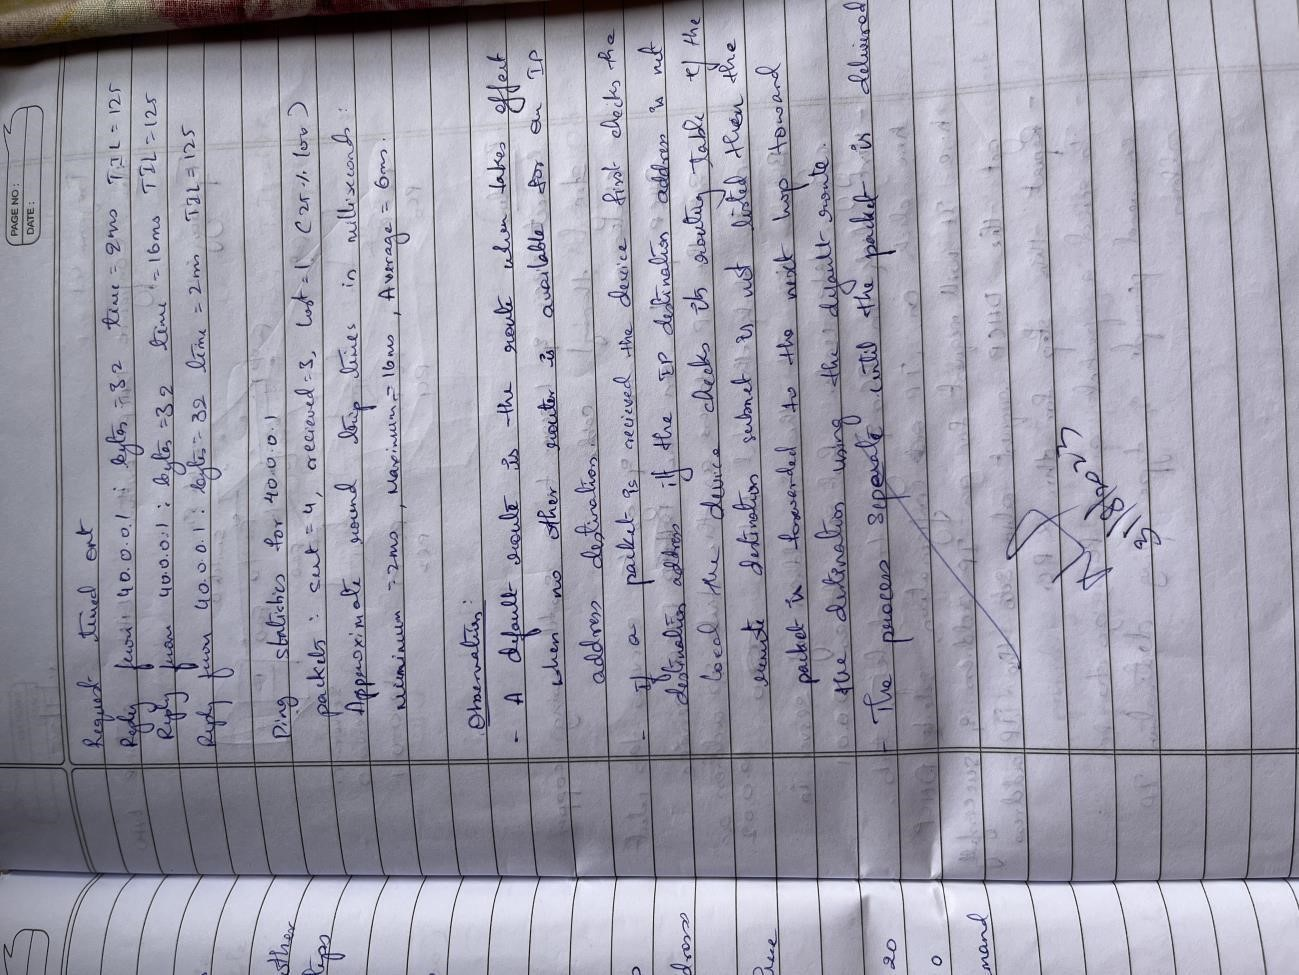 PAGE NO:
DATE:
Request timed out
Reply from 40.0.0.1: bytes=32 time=2ms TTL=125
Reply from 40.0.0.1: bytes=32 time=16ms TTL=125
Reply from 40.0.0.1: bytes=32 time=2ms TTL=125
Ping statistics for 40.0.0.1
packets: sent=4, recieved=3, lost=1 (25% loss)
Approximate round trip times in milliseconds:
Minimum=2ms, Maximum=16ms, Average=6ms.
Observation:
- A default route is the route when takes effect
when no other router is available for an IP
address destination
- If a packet is recieved the device first checks the
destination address if the IP destination address is not
local the device checks its routing table if the
remote destination subnet is not listed then the
packet is forwarded to the next hop toward
the destination using the default route.
- The process seperate until the packet is delivered
other
dress
20
0
mand